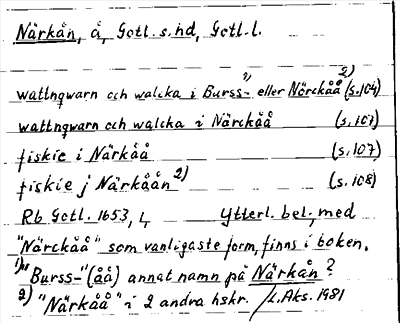 Närkån, å, Gotl. s. hd, Gotl. l.
wattnqwarn och walcka i Burss-¹⁾ eller Nörckåå²⁾ (s. 104)
wattnqwarn och walcka i Närckåå (s. 107)
fiskie i Närkåå (s. 107)
fiskie j Närkåån²⁾ (s. 108)
Rb Gotl. 1653, 1, Ytterl. bel., med
"Närckåå" som vanligaste form, finns i boken.
1) "Burss-"(åå) annat namn på Närkån?
2) "Närkåå" i 2 andra hskr. / L. Aks. 1981